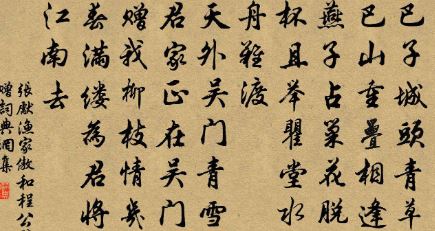 巴子城頭青草
巴山重疊相逢
燕子占巢花脱
杯且举瞿堂水
舟難渡
天外吴门青雪
君家正在吴门
赠我柳枝情幾
春满缕為君将
江南去
张献渔家傲和程公
赠詞典 集